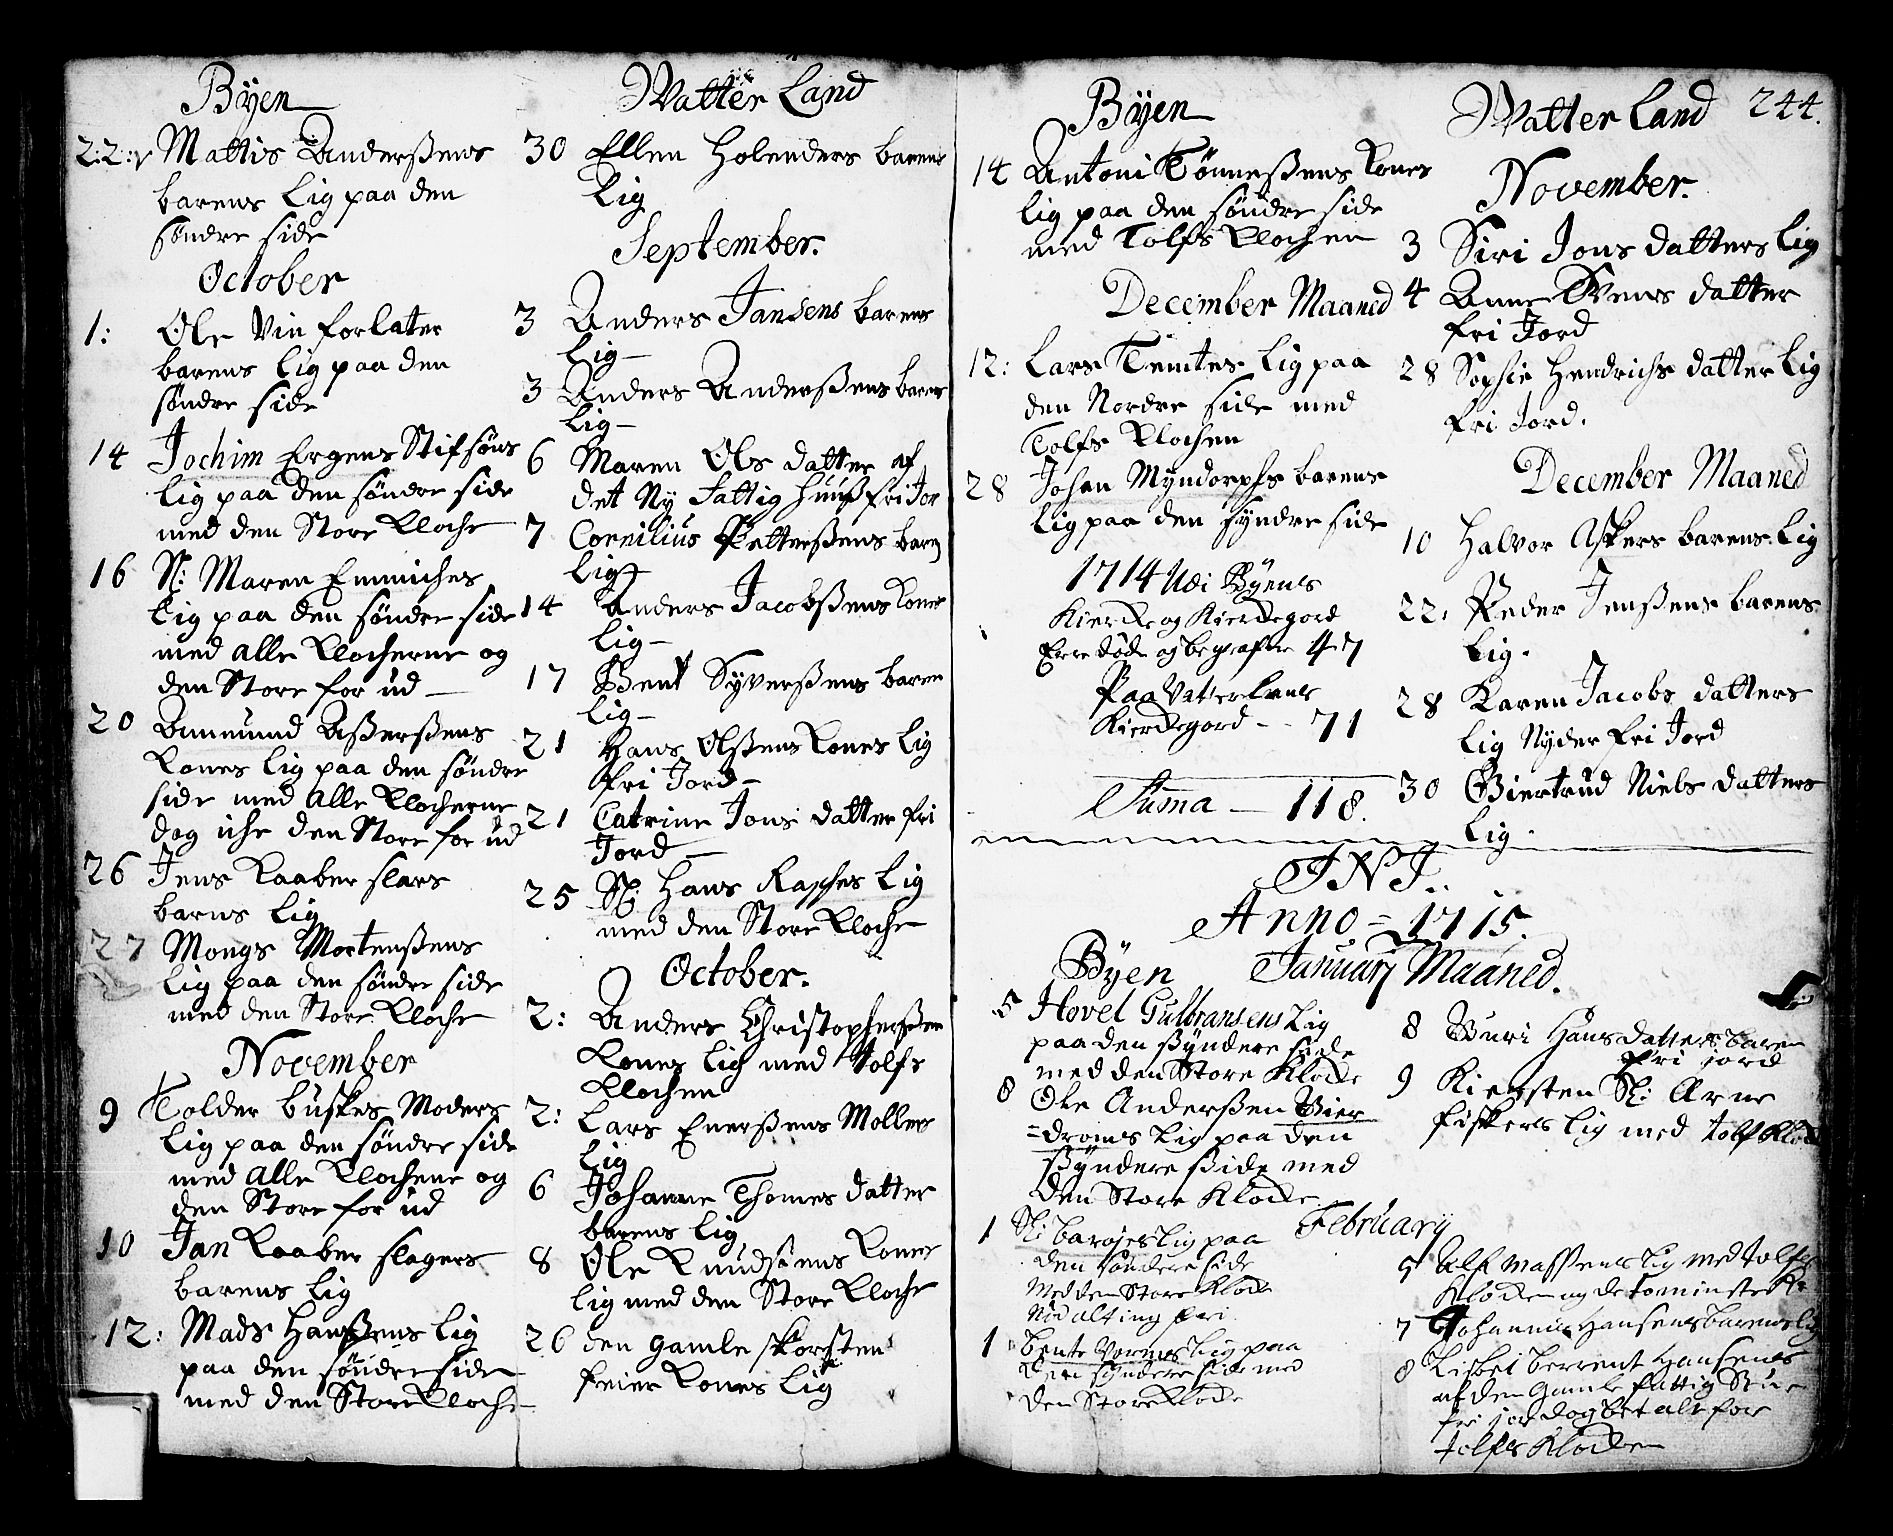 Byen
22: Mattis Anderßens
barens Lig paa den
søndre side
October
1: Ole Vin forlater
barens Lig paa den
søndre side
14 Jochim Ergens Stifsøns
Lig paa den søndre side
med den Store Klocke
16 Sl: Maren Emmiches
Lig paa den søndre side
med alle Klockerne og
den Store for ud
20 Amund Aßerßens
Kones Lig paa den søndre
side med alle Klockerne
dog iche den Store for ud
26 Jens Kaaber slars
barns Lig
27 Mongs Mortenßens
Lig paa den søndre side
med den Store Klocke
November
9 Tolder buskes Moders
Lig paa den søndre side
med alle Klockene og
den Store for ud
10 Jan Kaaber slagers
barens Lig
12: Mads Hanßens Lig
paa den søndre side
med den Store Klocke
Watter Land
30 Ellen Holenders barens
Lig
September.
3 Anders Jansens barens
Lig
3 Anders Anderßens barens
Lig
6 Maren Ols datter af
det Ny Fattig Huuß fri Jor
7 Cornilius Petterßens baren
Lig
14 Anders Jacobßens Kones
Lig
17 Bent Syverßens baren
Lig
21 Hans Olßens Kones Lig
fri Jord
21 Catrine Jons datter fri
Jord
25 Sl: Hans Raches Lig
med den Store Klocke
October.
2: Anders Christopherßen
Kones Lig med Tolfs
Klochen
2: Lars Enerßens Moller
Lig
6 Johanne Thomes datter
barens Lig
8 Ole Knudsens Kones
Lig med den Store Klocke
26 den gamle skorsten
feier Kones Lig
Byen
14 Antoni Tønneßens Kones
Lig paa den søndre side
med Tolfs Klochen
December Maaned
12: Lars Temtes Lig paa
den Nordre side med
Tolfs Klochen
28 Johan Myndorphs barens
Lig paa den syndre side
1714 Udi Byens
Kiercke og Kierckegord
Ere døde og begrafne 47
Paa Vatterlans
Kierckegord - - 71
Suma - 118.
Watter Land 244.
November.
3 Siri Jons datters Lig
4 Anne Svens datter
fri Jord
28 Sophie Hendrichs datter Lig
fri Jord.
December Maaned
10 Halvor Askers barens Lig
22, Peder Jenßens barens
Lig.
28 Karen Jacobs datters
Lig Nyder fri Jord
30 Giertrud Niels datters
Lig.
INI.
Anno = 1715.
Byen January Maaned.
5 Hovel Gulbransens Lig
paa den syndere side
med den Store Klocke
8 Ole Anderßen Bier
=droms Lig paa den
syndere side med
den Store Klocke
8 Guri Hans datters baren
fri jord
9 Kiersten Sl: Arne
fiskers Lig med tolf Klock
February
1 Sl: barojes Lig paa
den søndere side
Med den Store Klocke
Nød alting fri.
1 bente Lig paa
den syndere side med
den Store Klocke
5 Alf Massens Lig med tolfs
Klocken og de to minste Kl
7 Johannis Hansens barens Lig
8 Lisbet berrent Hansens
af den Gamle fattig Stue
fri jord og betalt for
tolfs Klocken